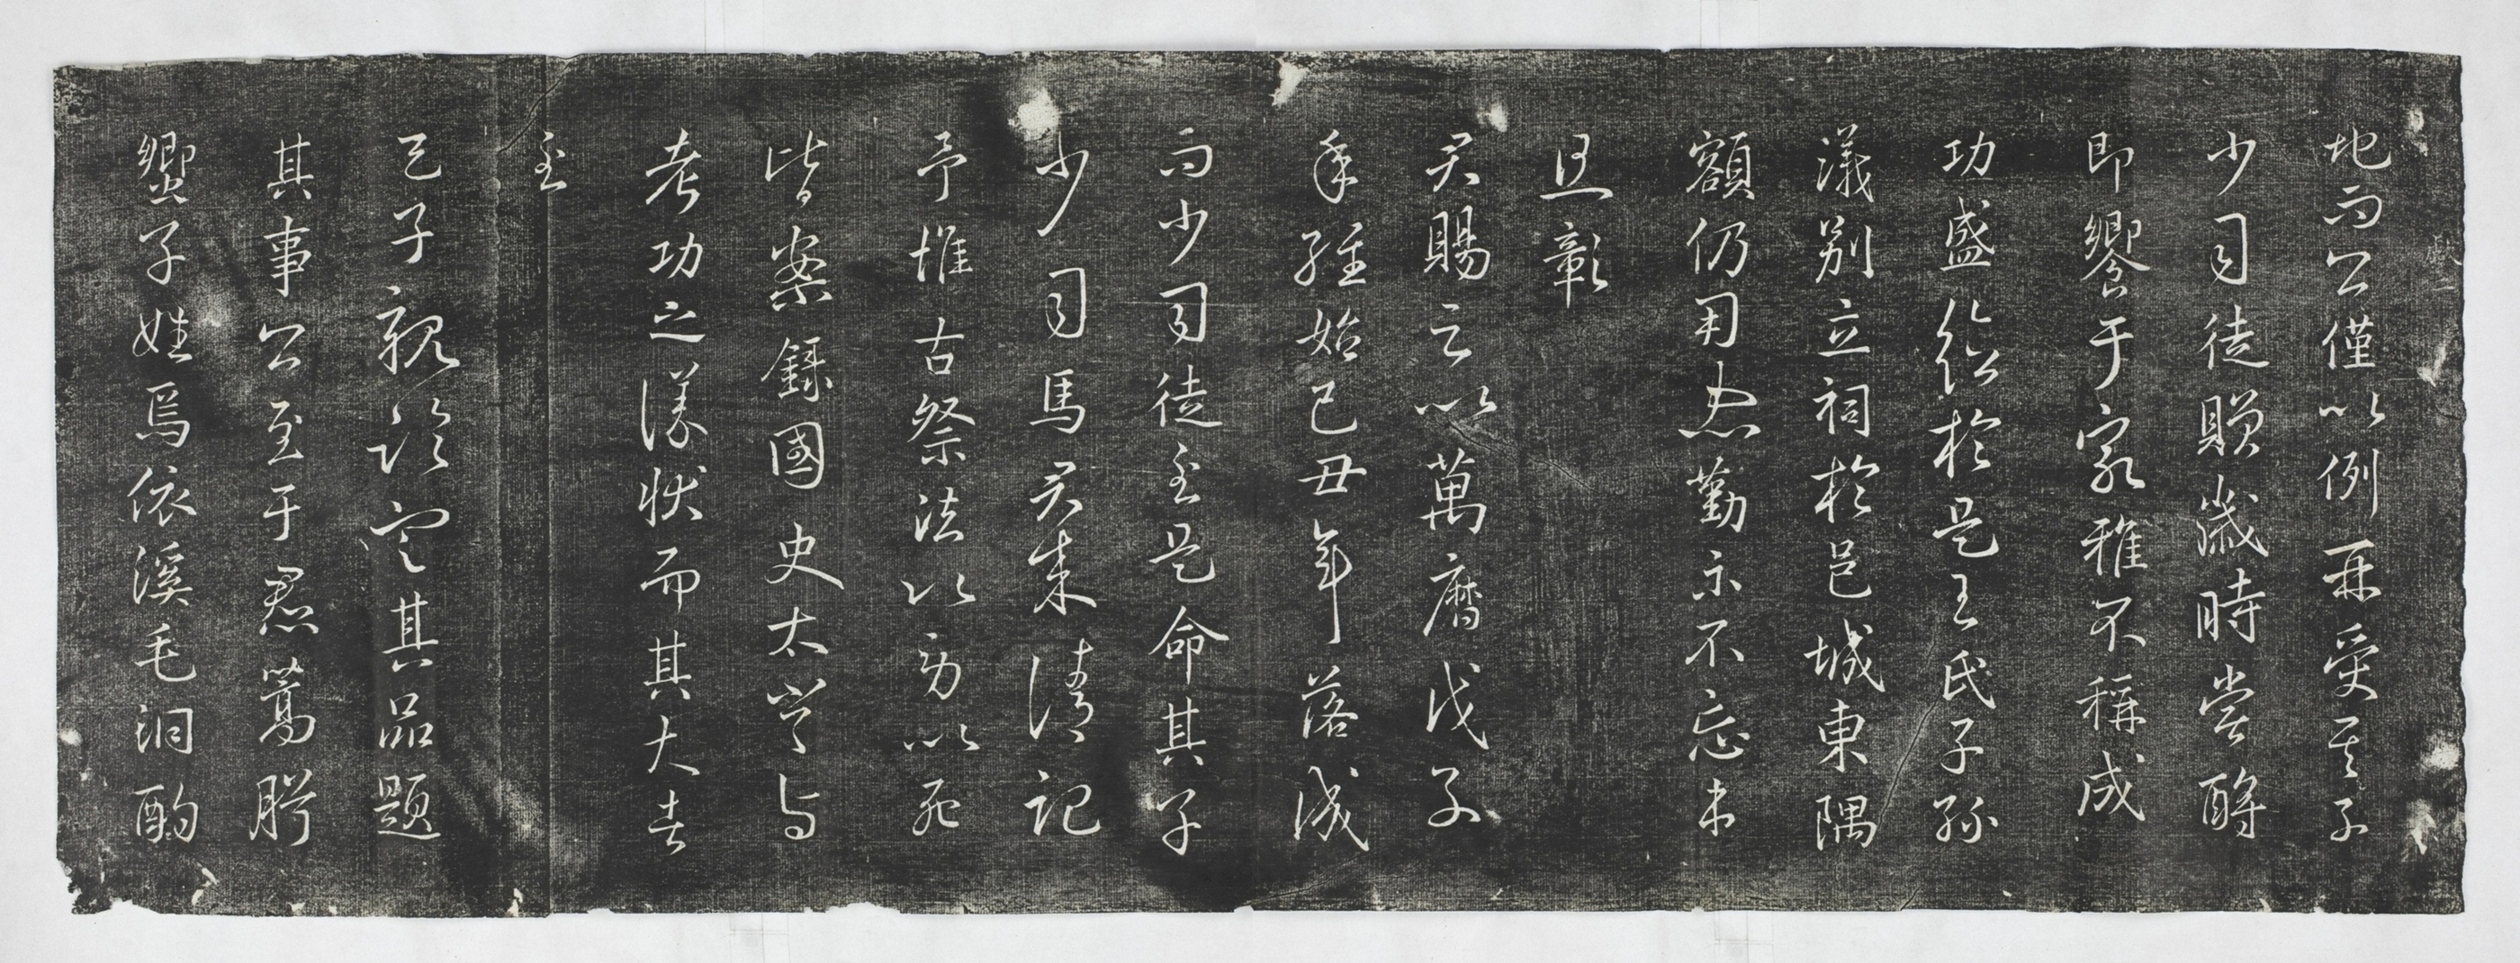 地而公僅以例再受其子
少司徒贈歲時嘗酹
即饗于家雅不稱成
功盛於是王氏子孫
議別立祠於邑城東隅
額仍用忠勤示不忘本
且彰
君賜云以萬曆戊子
季經始己丑年落成
而少司徒至是命其子
少司馬君來請記
予惟古祭法以勞以死
皆案錄國史太常与
考功之議狀而其大者
至
天子親臨定其品題
其事公至于焄蒿肸
蠁子姓焉依溪毛泂酌